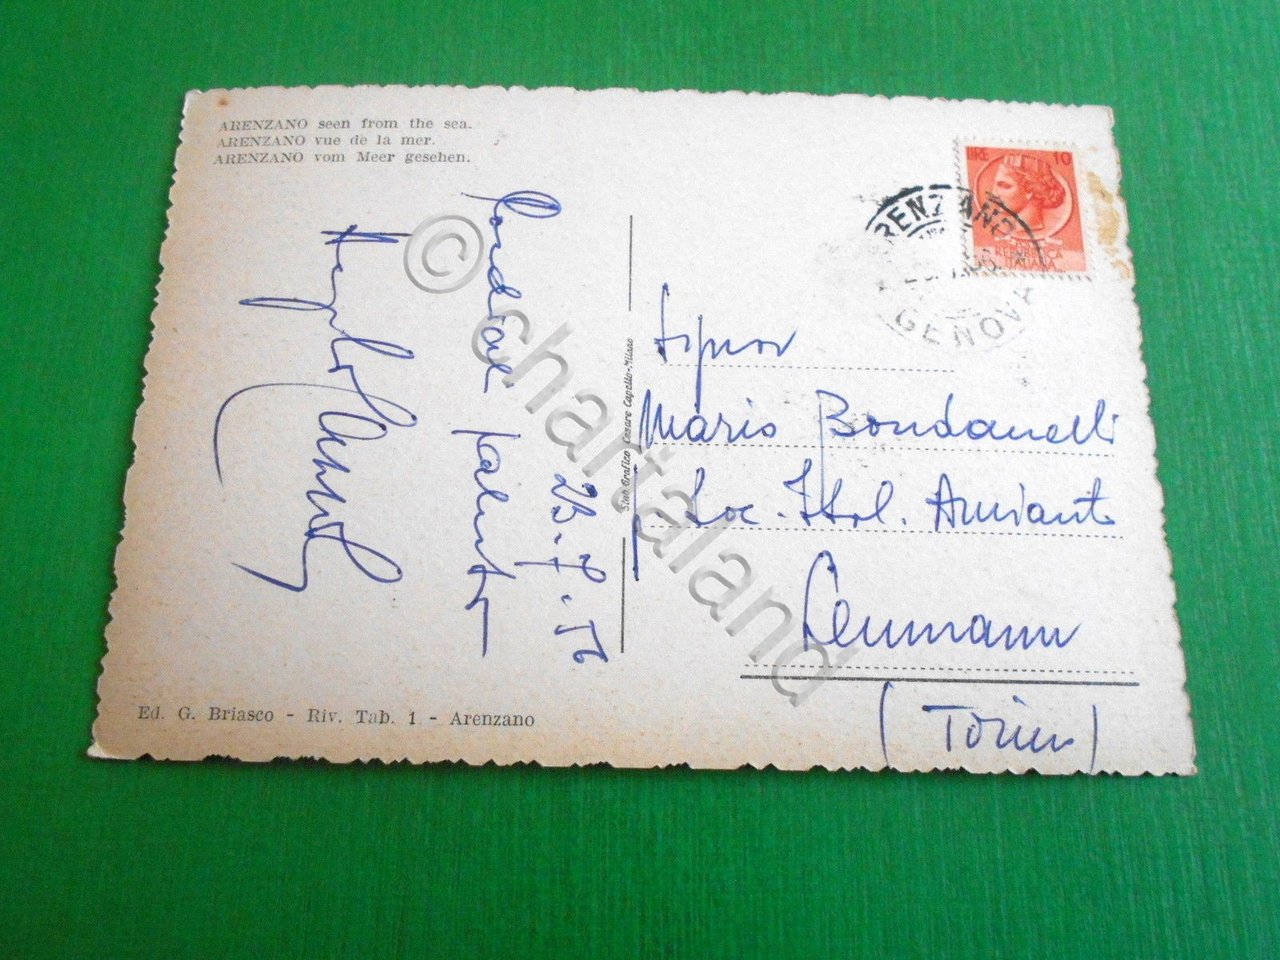 ARENZANO seen from the sea.
ARENZANO vue de la mer.
ARENZANO vom Meer gesehen.
LIRE 10
REPUBBLICA
ITALIANA
ARENZANO
GENOVA
Cordiali saluti
23-7-56
Signor
Mario Bondanelli
Soc. Ital. Amianto
Leumann
(Torino)
Stab. Grafico Cesare Capello-Milano
Ed. G. Briasco - Riv. Tab. 1 - Arenzano
© chartaland